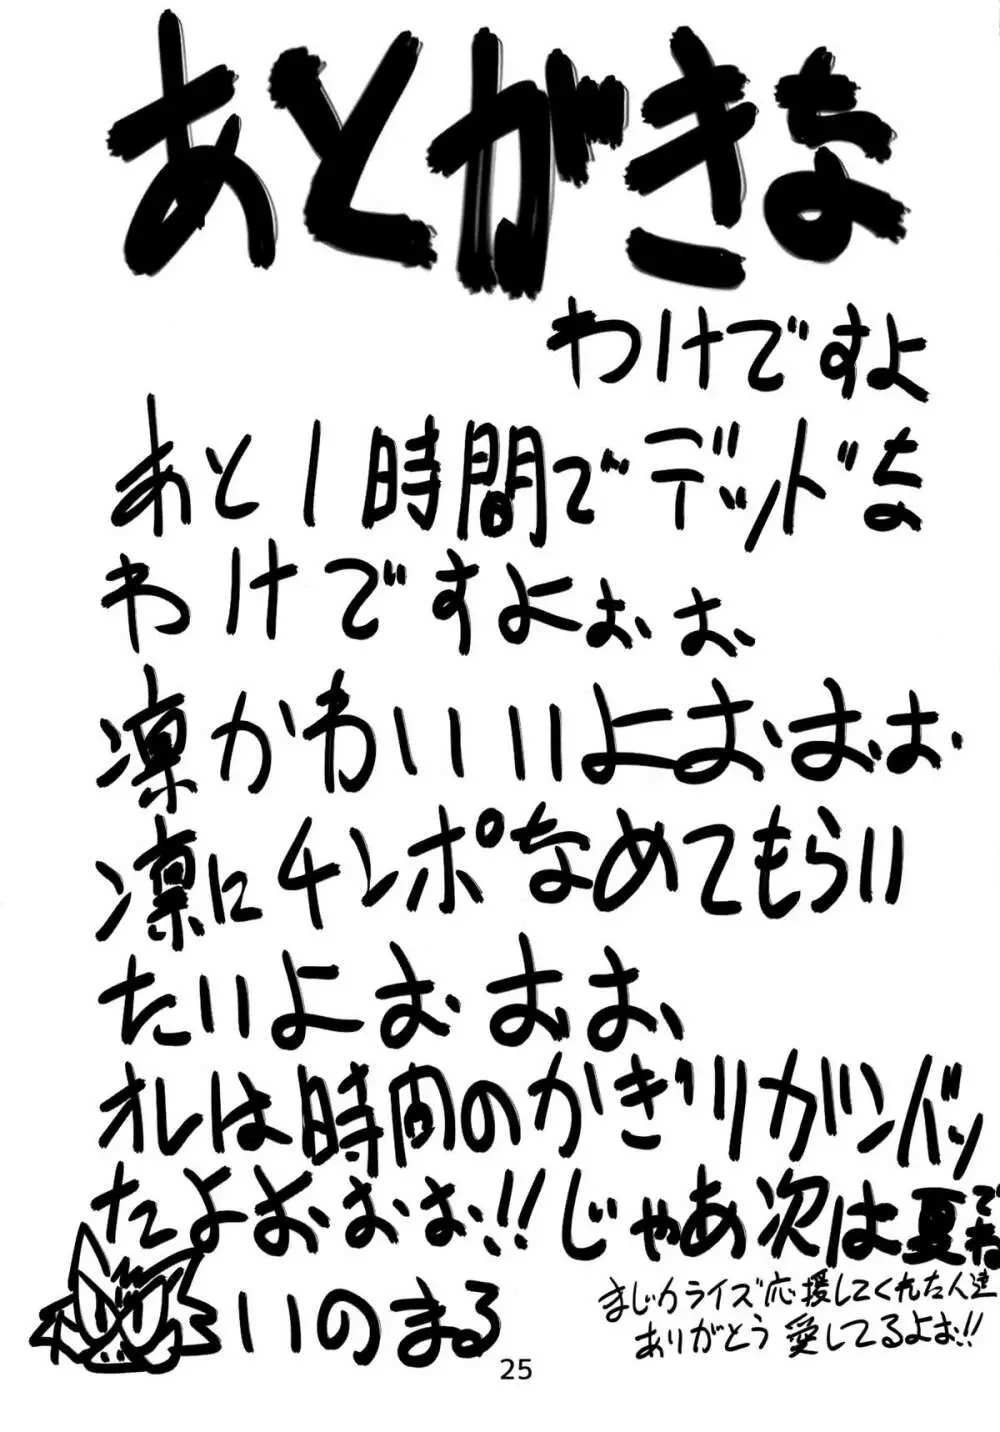 あとがきな
わけですよ
あと1時間でデッドな
わけですよぉぉ
凛かわいいよおぉぉ
凛にチンポなめてもらい
たいよぉぉぉ、
オレは時間のかぎりガンバッ
たよおぉぉ!!じゃあ次は夏でね
いのまる
まじカライズ応援してくれた人達
ありがとう愛してるよぉ!!
25